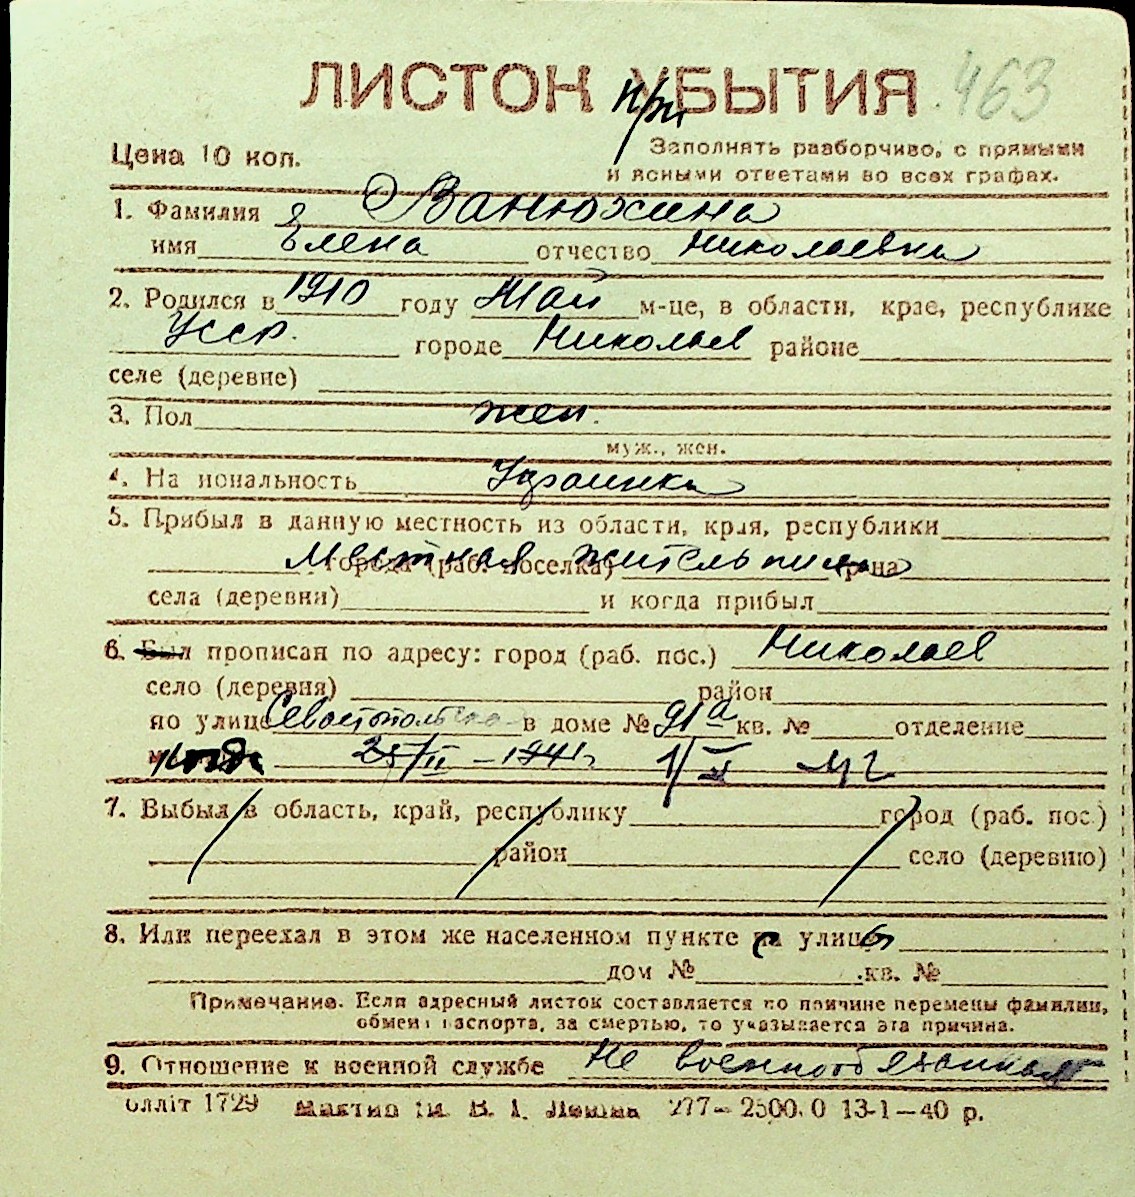 ЛИСТОК УБЫТИЯ 463
при
Цена 10 коп.
Заполнять разборчиво, с прямыми
и ясными ответами во всех графах.
1. Фамилия Ванюхина
имя Елена отчество Николаевна
2. Родился в 1910 году Май м-це, в области, крае, республике
Усср. городе Николаев районе
селе (деревне)
3. Пол жен.
муж., жен.
4. На иональность Украинка
5. Прибыл в данную местность из области, края, республики
Местная жительница
города (раб. поселка)
села (деревни) и когда прибыл
6. Был прописан по адресу: город (раб. пос.) Николаев
село (деревня) район
по улице Севастопольска в доме № 91а кв. № отделение
25/II – 1941г.
7. Выбыл в область, край, республику город (раб. пос.)
район село (деревню)
8. Или переехал в этом же населенном пункте на улицу
дом № кв. №
Примечание. Если адресный листок составляется по причине перемены фамилии,
обмен паспорта, за смертью, то указывается эта причина.
9. Отношение к военной службе Не военнообязанная
олліт 1729 277–2500.0 13-1–40 р.